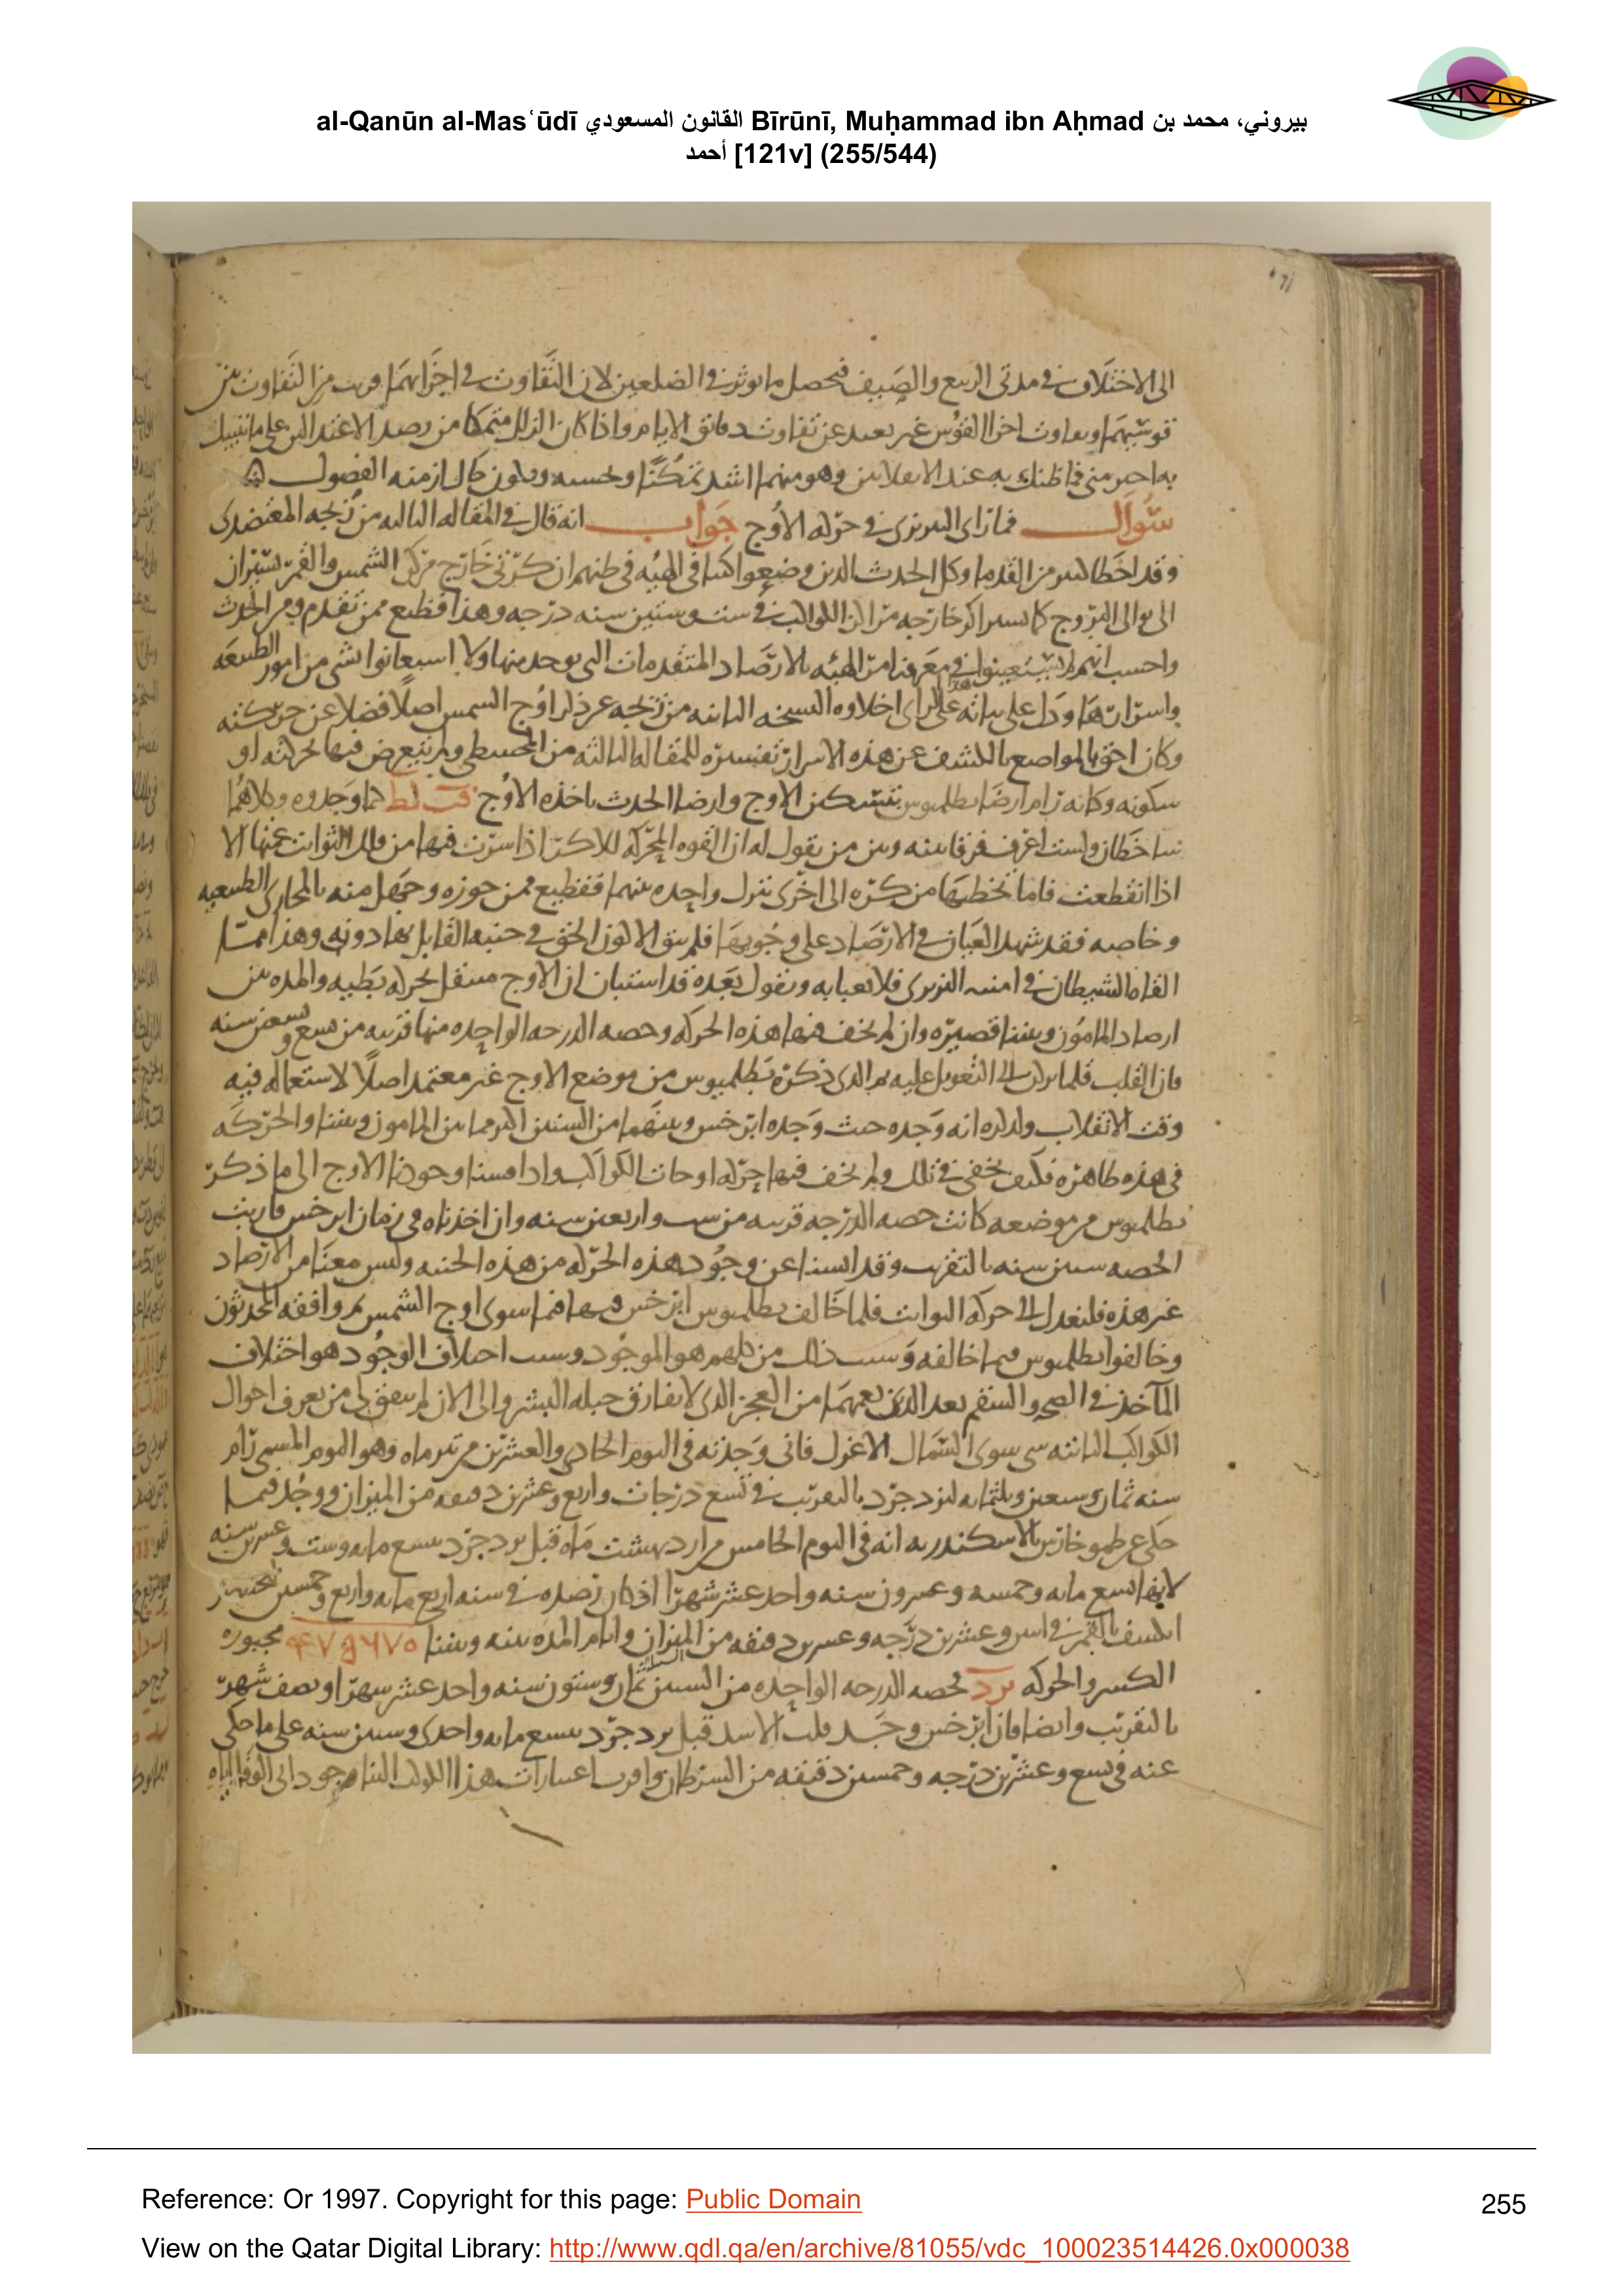 al-Qanūn al-Masʿūdī القانون المسعودي Bīrūnī, Muḥammad ibn Aḥmad بيروني، محمد بن
أحمد [121v] (255/544)
الى الاختلاف في مدتى الربيع والصيف فيحصل ما يوثر في الضلعين لان التفاوت في اجزايهما قريب من التفاوت بين
قوسيهما وتفاوت اجزا القوس غير بعيد عن تفاوت دقايق الايام واذا كان الزلل متمكنا من رصد الاعتدالين على ما تنبيك
به فما ظنك به عند الانقلابين وهو منهما اشد تمكنا وبحسبه ازمنه الفصول
سوال فما راى النيريزى في حركه الاوج جواب انه قال في المقاله الثالثه من زيجه المعتضدى
وقد اخطا كثير من القدما وكل الحدث الذين وضعوا كتبا في الهيه في ظنهم ان كرتى خارج مركز الشمس والقمر تسيران
الى توالى البروج كما تسير اكر خارجه مراكز الكواكب في ست وستين سنه درجه وهذا فظيع ممن تقدم ومن الحدث
واحسب انهم لم يستعينوا في معرفتها من الهيه بالارصاد المتقدمات التى توجد منها ولا استعانوا بشى من امور الطبيعه
واسرارها ودل على ثباته على هذا الراى اخلاوه النسخه الثانيه من زيجه عن ذكر اوج الشمس اصلا فضلا عن حركته
وكان احق المواضع بالكشف عن هذه الاسرار تفسيره للمقاله الثالثه من المجسطى ولم يتعرض فيها لحركته او
سكونه وكانه رام ارضا بطلميوس بتسكين الاوج وارضا الحدث باخذه الاوج فب لط كما وجدوه وكلاهما
يتناقضان ولست اعرف فرقا بينه وبين من يقول له ان القوه المحركه للاكر اذا سرت فيها من فلك الثوابت عمتها الا
اذا انقطعت فاما تخطيها من كره الى اخرى بترك واحده بينهما ففظيع ممن جوزه وجهل منه بالمجارى الطبيعيه
وخاصه فقد شهد العيان في الارصاد على وجوبها فلم يبق الا كون الحق في جنبه القايل بها دونه وهذا مما
القاه الشيطان في امنيه النيريزى فلا نعبا به ونقول بعده قد استبان ان الاوج متنقل بحركه بطيه والمده بين
ارصاد المامون وبيننا قصيره وان لم يخف فيها هذه الحركه وحصه الدرجه الواحده منها قريبه من سبع وسبعين سنه
فان القلب قلما يركن الى التعويل عليه ثم الذى ذكره بطلميوس من موضع الاوج غير معتمد اصلا لاستعماله فيه
وقت الانقلاب ولذكره انه وجده حيث وجده ابرخس وبينهما من السنين اكثر مما بين المامون وبيننا والحركه
في هذه ظاهره فكيف تخفى في تلك ولم يخف فيها حركه اوجات الكواكب واذا قسنا وجودنا الاوج الى ما ذكر
بطلميوس من موضعه كانت حصه الدرجه قريبه من ست واربعين سنه وان اخذناه في زمان ابرخس قاربت
الحصه ستين سنه بالتقريب وقد ايسنا عن وجود هذه الحركه من هذه الجنبه وليس معنا من الارصاد
غير هذه فلنعدل الى حركه الثوابت فلما خالف بطلميوس ابرخس فيها فيما سوى اوج الشمس ثم وافقه المحدثون
وخالفوا بطلميوس فيما خالفه وسبب ذلك من كلهم هو الموجود وسبب اختلاف الوجود هو اختلاف
المآخذ في الصحه والسقم بعد الذى يعمهما من العجز الذى لا يفارق جبله البشر والى الان لم يتفق لى من تعرف احوال
الكواكب الثابته شى سوى السماك الاعزل فانى وجدته في اليوم الحادى والعشرين من تير ماه وهو اليوم المسمى رام
سنه ثمان وسبعين وثلثمايه ليزدجرد بالتقريب في تسع درجات واربع وعشرين دقيقه من الميزان ووجد فيما
حكى عن طيموخارس بالاسكندريه انه في اليوم الخامس من ارديبهشت ماه قبل يزدجرد بتسع مايه وست وعشرين سنه
لانها تسع مايه وخمسه وعشرون سنه واحد عشر شهرا اذ كان رصده في سنه اربع مايه واربع وخمسين لبختنصر
انكسف بالقمر في اثنين وعشرين درجه وعشرين دقيقه من الميزان وايام المده بينه وبيننا ۴۷۵۶۷۵ مجبوره
الكسر والحركه يز د فحصه الدرجه الواحده من السنين ثمان وستون سنه واحد عشر شهرا ونصف شهر
بالتقريب وايضا فان ابرخس وجد قلب الاسد قبل يزدجرد بسبع مايه واحدى وستين سنه على ما حكى
عنه في تسع وعشرين درجه وخمسين دقيقه من السرطان واقرب اعتبارات هذا الكوكب الينا موجود ابى الوفا اياه
Reference: Or 1997. Copyright for this page: Public Domain
255
View on the Qatar Digital Library: http://www.qdl.qa/en/archive/81055/vdc_100023514426.0x000038